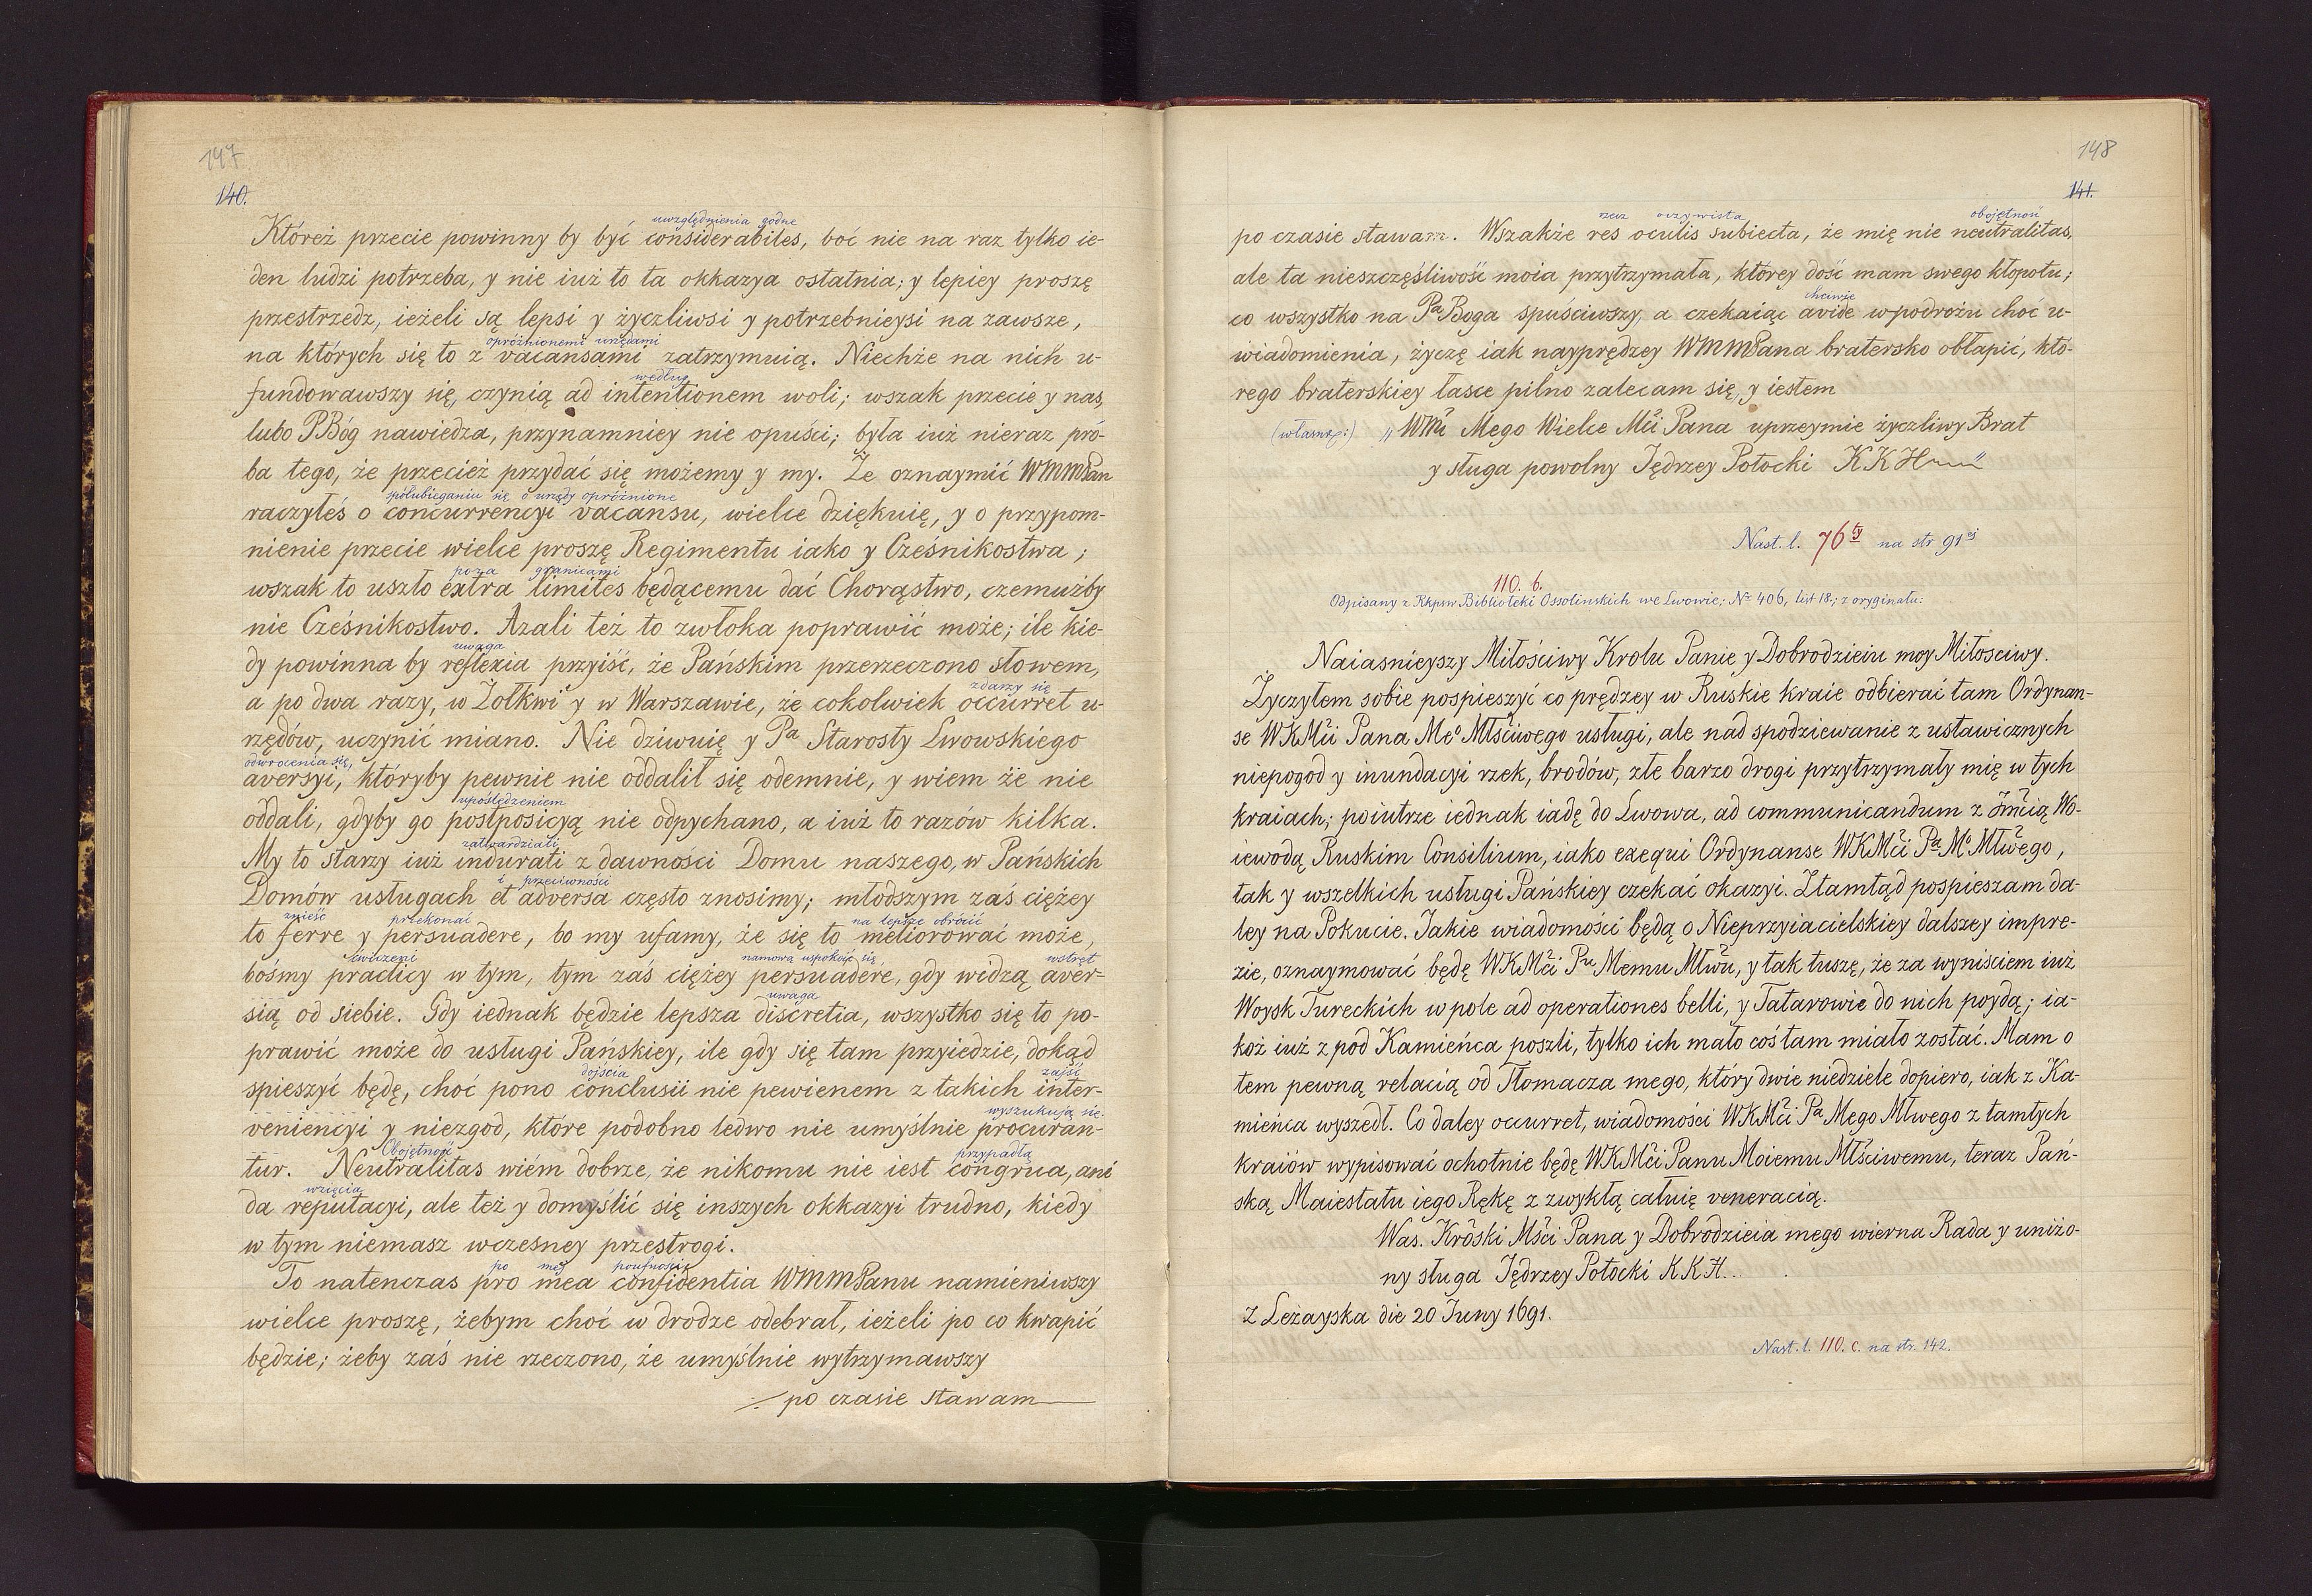 147
140.
uwzględnienia godne
Któreż przecie powinny by być considerabiles, boć nie na raz tylko ie-
den ludzi potrzeba, y nie iuż to ta okkazya ostatnia; y lepiey proszę
przestrzedz, ieżeli są lepsi y życzliwsi y potrzebnieysi na zawsze,
opróżnionemi urzędami
na których się to z vacansami zatrzymuią. Niechże na nich u-
według
fundowawszy się, czynią ad intentionem woli; wszak przecie y nas,
lubo PBóg nawiedza, przynamniey nie opuści; była iuż nieraz pró-
ba tego, że przecież przydać się możemy y my. Że oznaymić WMMPan
spółubieganiu się o urzędy opróżnione
raczyłeś o concurrencyi vacansu, wielce dziękuię, y o przypom-
nienie przecie wielce proszę Regimentu iako y Cześnikostwa;
poza granicami
wszak to uszło extra limites będącemu dać Chorąstwo, czemużby
nie Cześnikostwo. Azali też to zwłoka poprawić może; ile kie-
uwaga
dy powinna by reflexia przyiść, że Pańskim przerzeczono słowem,
zdarzy się
a po dwa razy, w Żołkwi y w Warszawie, że cokolwiek occurret u-
rzędów, uczynić miano. Nie dziwuię y Pa Starosty Lwowskiego
odwrocenia się,
aversyi, któryby pewnie nie oddalił się odemnie, y wiem że nie
upośledzeniem
oddali, gdyby go postposicyą nie odpychano, a iuż to razów kilka.
zatwardziali
My to starzy iuż indurati z dawności Domu naszego, w Pańskich
i przeciwności
Domów usługach et adversa często znosimy; młodszym zaś ciężey
znieść przekonać na lepsze obrócić
to ferre y persuadere, bo my ufamy, że się to meliorować może,
ćwiczeni namową uspokoić się wstręt
bośmy practicy w tym, tym zaś ciężey persuadere, gdy widzą aver-
uwaga
sią od siebie. Gdy iednak będzie lepsza discretia, wszystko się to po-
prawić może do usługi Pańskiey, ile gdy się tam przyiedzie, dokąd
dojścia zajść
spieszyć będę, choć pono conclusii nie pewienem z takich inter-
wyszukują się
veniencyi y niezgod, które podobno ledwo nie umyślnie procuran-
Obojętność przypadłą
tur. Neutralitas wiém dobrze, że nikomu nie iest congrua, ani
wzięcia
da reputacyi, ale też y domyślić się inszych okkazyi trudno, kiedy
w tym niemasz wczesney przestrogi.
po mej poufności
To natenczas pro mea confidentia WMMPanu namieniwszy
wielce proszę, żebym choć w drodze odebrał, ieżeli po co kwapić
będzie; żeby zaś nie rzeczono, że umyślnie wytrzymawszy
po czasie stawam
148
141.
rzecz oczywista obojętność
po czasie stawam. Wszakże res oculis subiecta, że mię nie neutralitas,
ale ta nieszczęśliwość moia przytrzymała, którey dość mam swego kłopotu;
chciwie
co wszystko na Pa Boga spuściwszy, a czekaiąc avide w podróżu choć u-
wiadomienia, życzę iak nayprędzey WMMPana bratersko obłapić, któ-
rego braterskiey łasce pilno zalecam się, y iestem
(własnoz:) „WMci Mego Wielce Mci Pana uprzeymie życzliwy Brat
y sługa powolny Jędrzey Potocki KKH"
Nast. l. 76ty na str 91ej
110. b.
Odpisany z Rkpsw Biblioteki Ossolinskich we Lwowie; Nr 406, list 18.; z oryginału:
Naiasnieyszy Miłościwy Krolu Panie y Dobrodzieiu moy Miłosciwy.
Życzyłem sobie pospieszyć co prędzey w Ruskie kraie odbierać tam Ordynan-
se WKMci Pana Meo Młściwego usługi, ale nad spodziewanie z ustawicznych
niepogod y inundacyi rzek, brodów, złe barzo drogi przytrzymały mię w tych
kraiach; poiutrze iednak iadę do Lwowa, ad communicandum z Jmcią Wo-
iewodą Ruskim Consilium, iako exequi Ordynanse WKMci Pa Mo Młwego,
tak y wszelkich usługi Pańskiey czekać okazyi. Ztamtąd pospieszam da-
ley na Pokucie. Jakie wiadomości będą o Nieprzyiacielskiey dalszey impre-
zie, oznaymować będę WKMci Pu Memu Młwu, y tak tuszę, że za wyniściem iuż
Woysk Tureckich w pole ad operationes belli, y Tatarowie do nich poydą; ia-
koż iuż z pod Kamieńca poszli, tylko ich mało coś tam miało zostać. Mam o
tem pewną relacią od Tłomacza mego, który dwie niedziele dopiero, iak z Ka-
mieńca wyszedł. Co daley occurret, wiadomości WKMci Pa Mego Młwego z tamtych
kraiów wypisować ochotnie będę WKMci Panu Moiemu Młściwemu, teraz Pań-
ską Maiestatu iego Rękę z zwykłą całuię veneracią.
Was. Króski Mści Pana y Dobrodzieia mego wierna Rada y uniżo-
ny sługa Jędrzey Potocki KKH..
Z Leżayska die 20 Juny 1691.
Nast. l. 110. c. na str. 142.